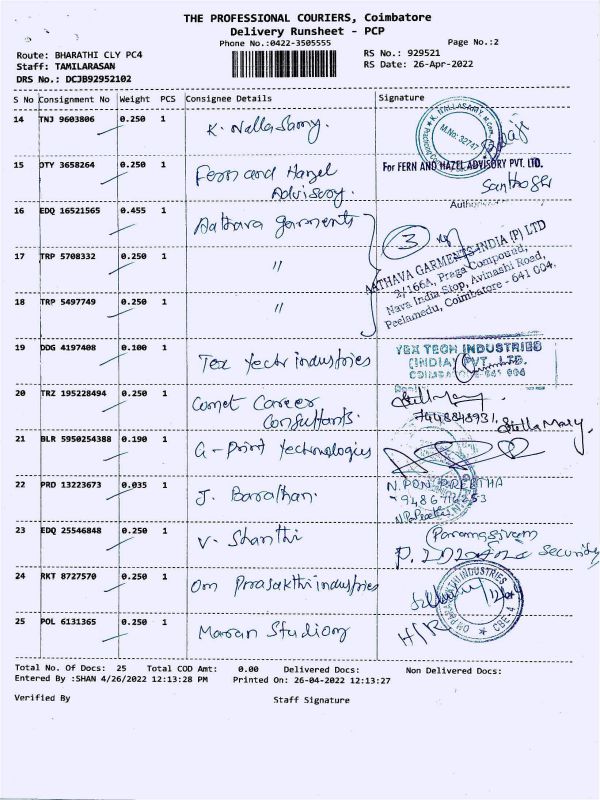 THE PROFESSIONAL COURIERS, Coimbatore
Delivery Runsheet - PCP
Phone No.:0422-3505555 Page No.:2
Route: BHARATHI CLY PC4 RS No.: 929521
Staff: TAMILARASAN RS Date: 26-Apr-2022
DRS No.: DCJB92952102
S No Consignment No Weight PCS Consignee Details Signature
14 TNJ 9603806 0.250 1 K. Nallasamy.
K. NALLASAMY
M.No: 32747
15 DTY 3658264 0.250 1 Fern and Hazel
Advisory.
For FERN AND HAZEL ADVISORY PVT. LTD.
Santhosh
16 EDQ 16521565 0.455 1 Aathava garments
3
17 TRP 5708332 0.250 1 "
AATHAVA GARMENTS INDIA (P) LTD
3/166A, Praga Compound,
Nava India Stop, Avinashi Road,
Peelamedu, Coimbatore - 641 004.
18 TRP 5497749 0.250 1 "
19 DDG 4197408 0.100 1 Tex Techr industries
INDUSTRIES
(INDIA) PVT. LTD.
20 TRZ 195228494 0.250 1 Comet Career
Consultants.
7448848931, Stella Mary,
21 BLR 5950254388 0.190 1 G-Point Technologies
22 PRD 13223673 0.035 1 J. Barathan.
N. PON PREETHA
23 EDQ 25546848 0.250 1 V. Shanthi
Paramasivam
Security
24 RKT 8727570 0.250 1 Om Prrasakthi industries
25 POL 6131365 0.250 1 Maran Studiory
H/R
CBE-4
Total No. Of Docs: 25 Total COD Amt: 0.00 Delivered Docs: Non Delivered Docs:
Entered By :SHAN 4/26/2022 12:13:28 PM Printed On: 26-04-2022 12:13:27
Verified By Staff Signature